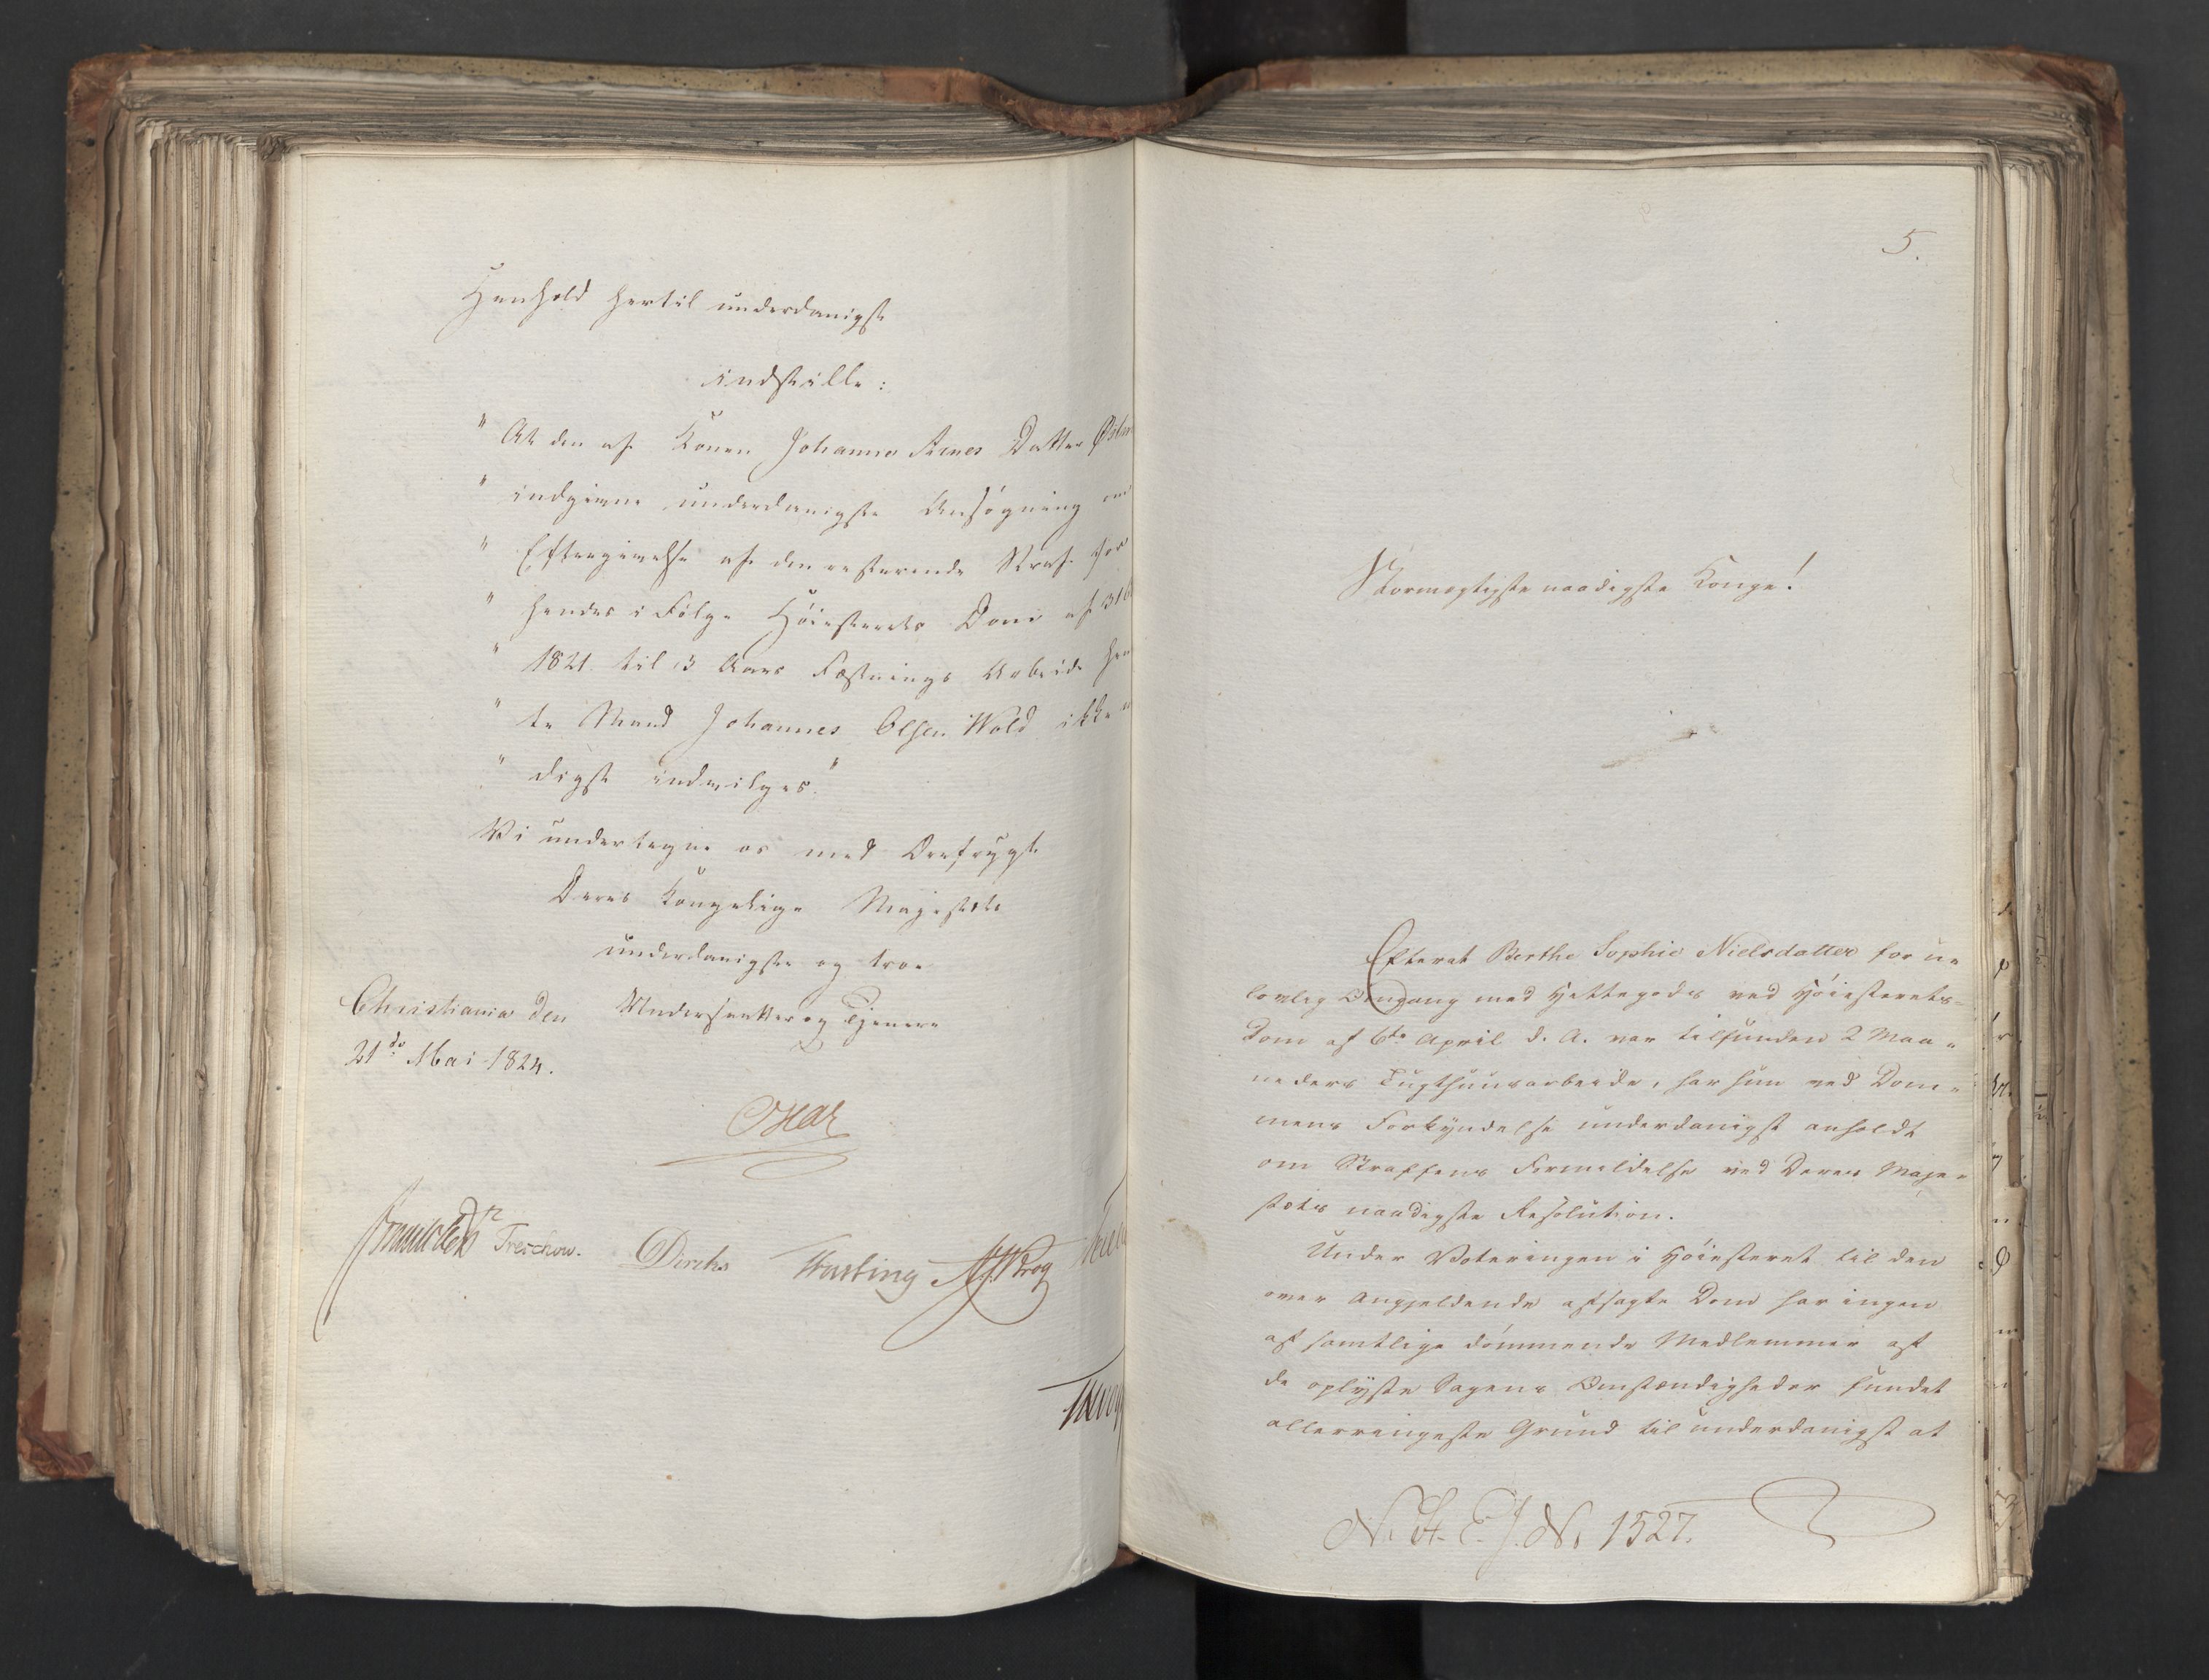 Henhold hertil underdanigst
indstille:
" At den af Konen Johanna Arnes Datter
" indgivne underdanigste Ansøgning om
" Eftergivelse af den resterende Straf for
" hendes i Følge Høiesterets Dom af
" 1821 til 3 Aars Fæstnings Arbeide
" te Mand Johannes Olsen Wold ikke
" digst indvilges."
Vi undertegne os med Ærefrygt
Deres Kongelige Majestæts
underdanigste og troe
Christiania den Undersaatter og Tjenere
21de Mai 1824.
Oscar
Treschow. Diriks Krog
5.
Stormægtigste naadigste Konge!
Efterat Berthe Sophie Nielsdatter for u=
lovlig Omgang med Hittegods ved Høiesterets=
Dom af 6te April d. A. var tilfunden 2 Maa=
neders Tugthuusarbeide, har hun ved Dom=
mens Forkyndelse underdanigst anholdt
om Straffens Formildelse ved Deres Maje=
stæts naadigste Resolution.
Under Voteringen i Høiesteret til den
over Angjeldende afsagte Dom har ingen
af samtlige dømmende Medlemmer af
de oplyste Sagens Omstændigheder fundet
allerringeste Grund til underdanigst at
N. St. E. J. No 1527.